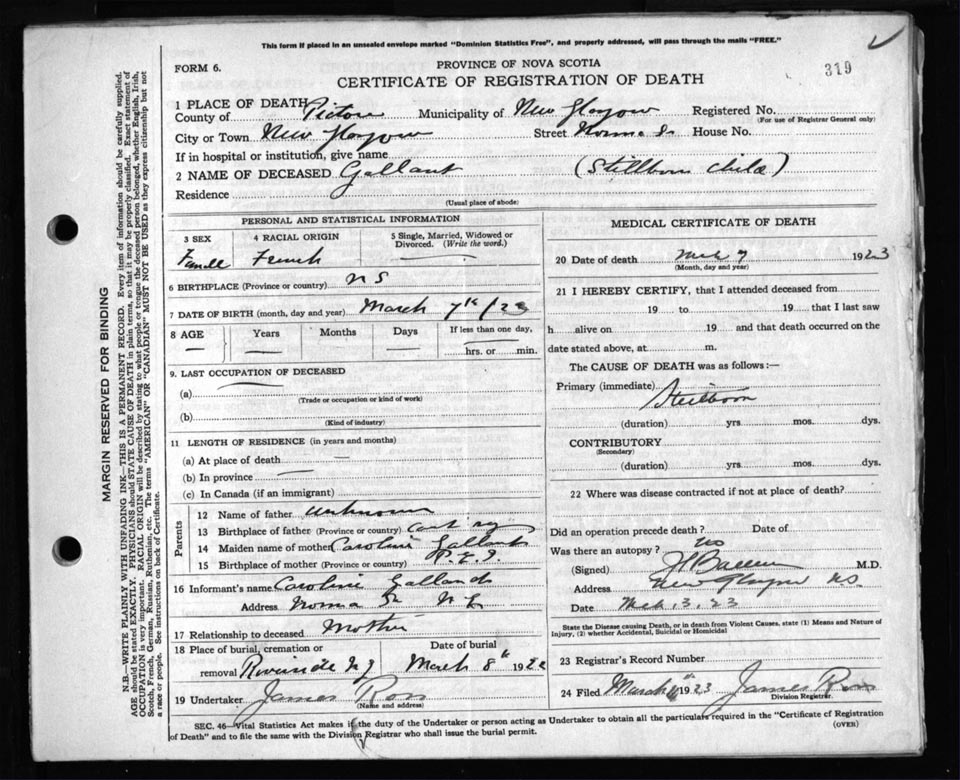 This form if placed in an unsealed envelope marked "Dominion Statistics Free", and properly addressed, will pass through the mails "FREE."
FORM 6.
PROVINCE OF NOVA SCOTIA
319
CERTIFICATE OF REGISTRATION OF DEATH
MARGIN RESERVED FOR BINDING
N.B.—WRITE PLAINLY WITH UNFADING INK—THIS IS A PERMANENT RECORD. Every item of information should be carefully supplied.
AGE should be stated EXACTLY. PHYSICIANS should STATE CAUSE OF DEATH in plain terms, so that it may be properly classified. Exact statement of
OCCUPATION is very important. RACIAL ORIGIN will be described by stating to what people or tongue the deceased person belonged, whether English, Irish,
Scotch, French, German, Russian, Ruthenian, etc. The terms "AMERICAN" OR "CANADIAN" MUST NOT BE USED as they express citizenship but not
a race or people. See instructions on back of Certificate.
1 PLACE OF DEATH
County of Pictou Municipality of New Glasgow Registered No.
(For use of Registrar General only)
City or Town New Glasgow Street House No.
If in hospital or institution, give name
2 NAME OF DECEASED Gallant (Stillborn child)
Residence
(Usual place of abode)
PERSONAL AND STATISTICAL INFORMATION
3 SEX 4 RACIAL ORIGIN 5 Single, Married, Widowed or
Divorced. (Write the word.)
Female French
6 BIRTHPLACE (Province or country) N S
7 DATE OF BIRTH (month, day and year) March 7th/23
8 AGE Years Months Days If less than one day,
hrs. or min.
9. LAST OCCUPATION OF DECEASED
(a)
(Trade or occupation or kind of work)
(b)
(Kind of industry)
11 LENGTH OF RESIDENCE (in years and months)
(a) At place of death
(b) In province
(c) In Canada (if an immigrant)
Parents
12 Name of father unknown
13 Birthplace of father (Province or country)
14 Maiden name of mother Caroline Gallant
15 Birthplace of mother (Province or country) P.E.I
16 Informant's name Caroline Gallant
Address
17 Relationship to deceased Mother
18 Place of burial, cremation or Date of burial
removal Riverside March 8th 192
19 Undertaker James Ross
(Name and address)
MEDICAL CERTIFICATE OF DEATH
20 Date of death Mch 7 1923
(Month, day and year)
21 I HEREBY CERTIFY, that I attended deceased from
19 to 19 that I last saw
h alive on 19 and that death occurred on the
date stated above, at m.
The CAUSE OF DEATH was as follows:—
Primary (immediate) Stillborn
(duration) yrs mos. dys.
CONTRIBUTORY
(Secondary)
(duration) yrs. mos. dys.
22 Where was disease contracted if not at place of death?
Did an operation precede death? Date of
Was there an autopsy? no
(Signed) M.D.
Address New Glasgow N.S.
Date Mch, 3, 23
State the Disease causing Death, or in death from Violent Causes, state (1) Means and Nature of
Injury, (2) whether Accidental, Suicidal or Homicidal
23 Registrar's Record Number
24 Filed March 1923 James Ross
Division Registrar.
SEC. 46—Vital Statistics Act makes it the duty of the Undertaker or person acting as Undertaker to obtain all the particulars required in the "Certificate of Registration
of Death" and to file the same with the Division Registrar who shall issue the burial permit.
(OVER)